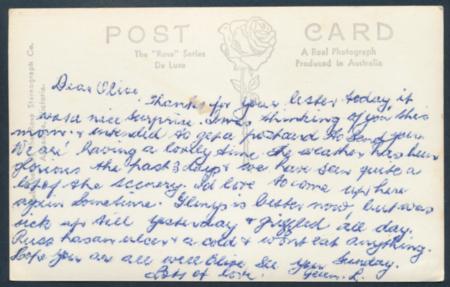 POST CARD
The "Rose" Series
De Luxe
A Real Photograph
Produced in Australia
Rose Stereograph Co.
Victoria.
Dear Olive
Thanks for your letter today, it
was a nice surprise. I was thinking of you this
morn & intended to get a postcard to send you.
We are having a lovely time the weather has been
glorious the past 3 days & we have seen quite a
lot of the scenery. I'd love to come up here
again sometime. Glenys is better now, but was
sick up till yesterday & all day.
Russ has an ulcer & a cold & won't eat anything.
Hope you are all well Olive. See you Sunday.
Lots of love.